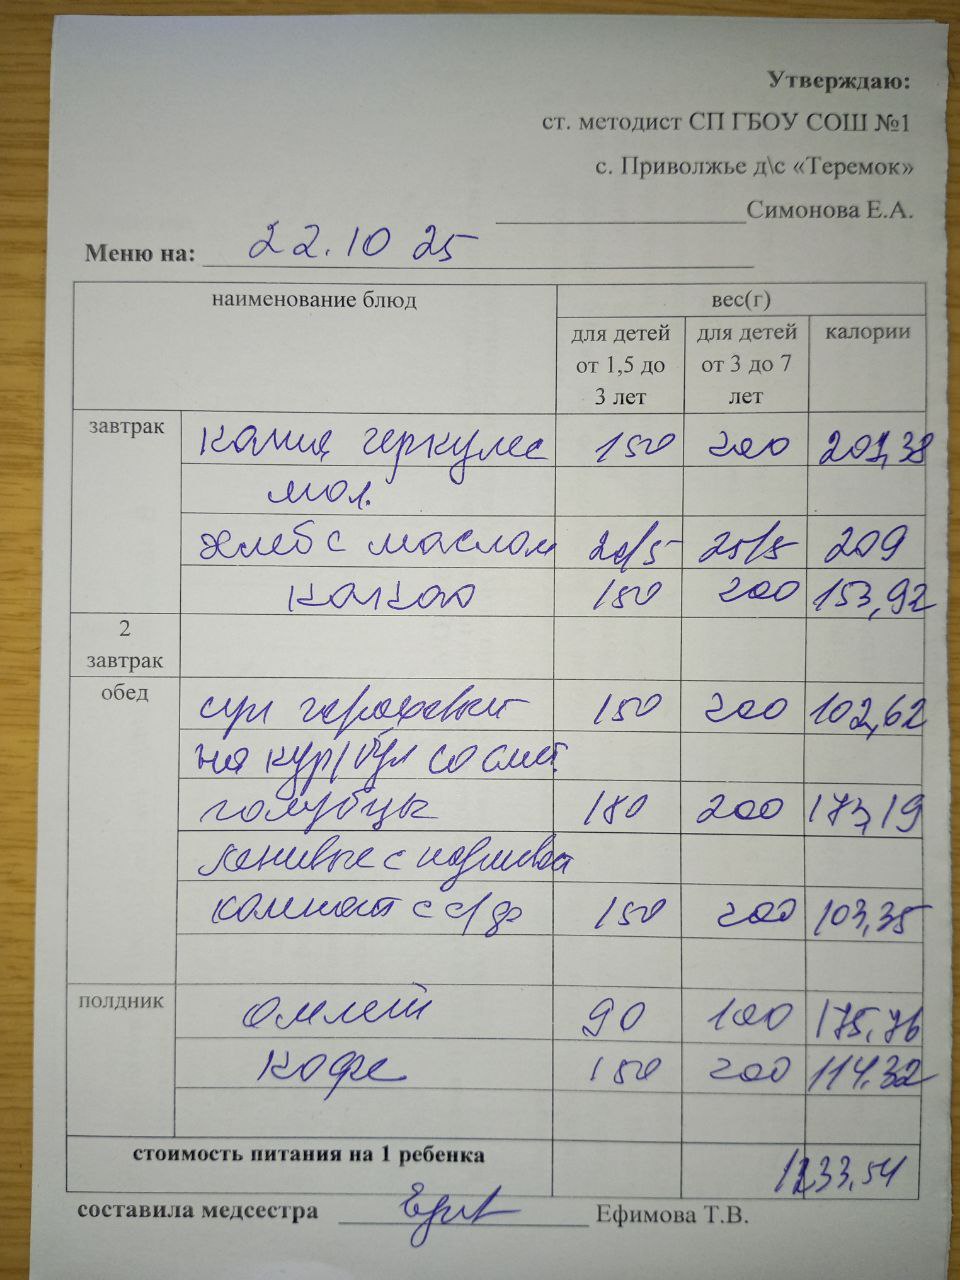 Утверждаю:
ст. методист СП ГБОУ СОШ №1
с. Приволжье д\с «Теремок»
Симонова Е.А.
Меню на: 22.10 25
наименование блюд вес(г)
для детей от 1,5 до 3 лет для детей от 3 до 7 лет калории
завтрак каша геркулес 150 200 201,38
мол.
хлеб с маслом 20/5 25/5 209
какао 180 200 153,92
2 завтрак
обед суп гороховый 150 200 102,62
на кур/бул со смет.
голубцы 180 200 173,19
ленивые с подливой
компот с с/ф 150 200 103,35
полдник омлет 90 100 175,76
кофе 180 200 114,32
стоимость питания на 1 ребенка 1233,54
составила медсестра Ефимова Т.В.